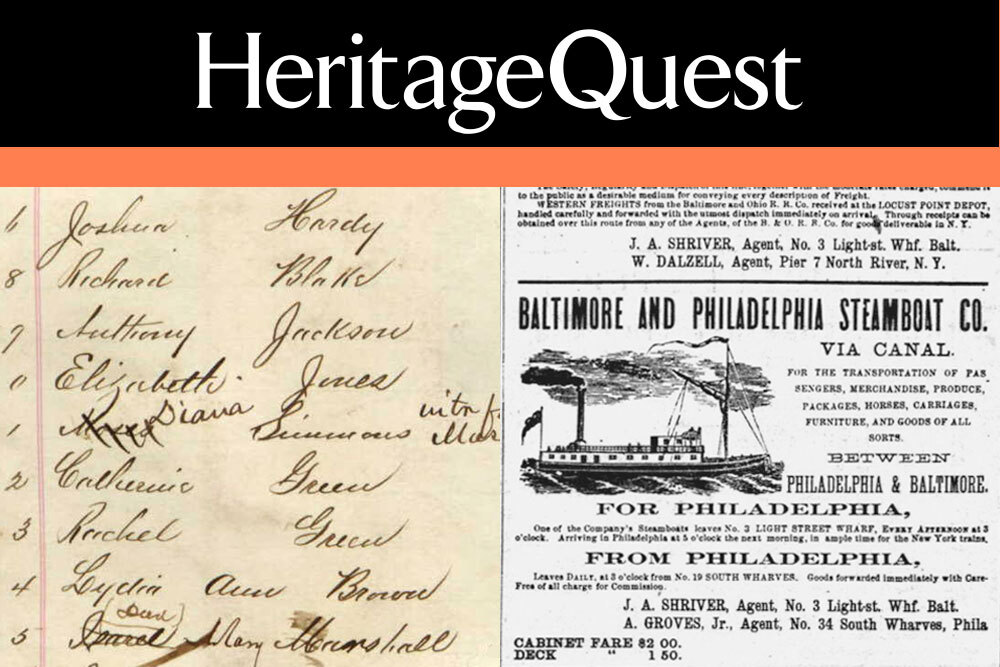 HeritageQuest
6 Joshua Hardy
8 Richard Blake
9 Anthony Jackson
0 Elizabeth. Jones
1 Diana Simmons
2 Catherine Green
3 Rachel Green
4 Lydia Ann Brown
(Dead)
5 Mary Marshall
to the public as a desirable medium for conveying every description of Freight.
WESTERN FREIGHTS from the Baltimore and Ohio R. R. Co. received at the LOCUST POINT DEPOT,
handled carefully and forwarded with the utmost dispatch immediately on arrival. Through receipts can be
obtained over this route from any of the Agents, of the B. & O. R. R. Co. for goods deliverable in N. Y.
J. A. SHRIVER, Agent, No. 3 Light-st. Whf. Balt.
W. DALZELL, Agent, Pier 7 North River, N. Y.
BALTIMORE AND PHILADELPHIA STEAMBOAT CO.
VIA CANAL.
FOR THE TRANSPORTATION OF PAS
SENGERS, MERCHANDISE, PRODUCE,
PACKAGES, HORSES, CARRIAGES,
FURNITURE, AND GOODS OF ALL
SORTS.
BETWEEN
PHILADELPHIA & BALTIMORE.
FOR PHILADELPHIA,
One of the Company's Steamboats leaves No. 3 LIGHT STREET WHARF, EVERY AFTERNOON at 3
o'clock. Arriving in Philadelphia at 5 o'clock the next morning, in ample time for the New York trains.
FROM PHILADELPHIA,
Leaves DAILY, at 3 o'clock from No. 19 SOUTH WHARVES. Goods forwarded immediately with Care-
Free of all charge for Commission.
J. A. SHRIVER, Agent, No. 3 Light-st. Whf. Balt.
A. GROVES, Jr., Agent, No. 34 South Wharves, Phila
CABINET FARE $2 00.
DECK " 1 50.